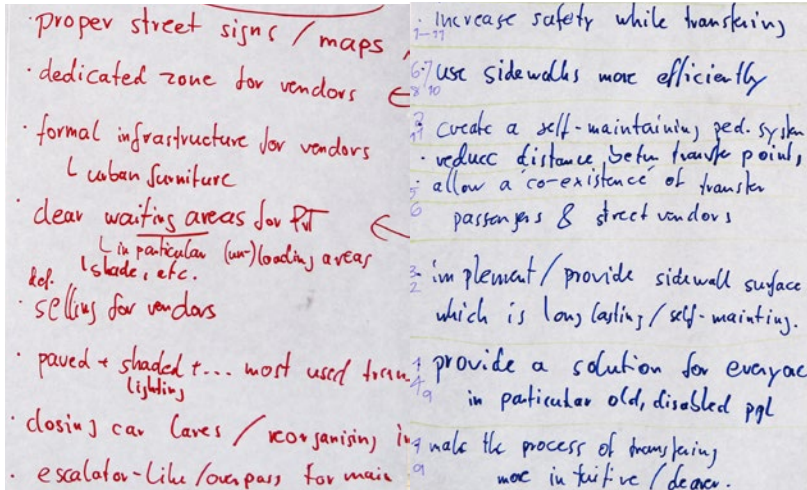 · proper street signs / maps,
· dedicated zone for vendors
· formal infrastructure for vendors
└ urban furniture
· clear waiting areas for PvT
└ in particular (un-)loading areas
└ shade, etc.
def.
· selling for vendors
· paved + shaded + ... most used
lighting
· closing car lanes / reorganising
· escalator-like / overpass for main
· increase safety while transfering
1-11
6·7 · use sidewalks more efficiently
8 10
· create a self-maintaining ped. system
11
· reduce distance betw transfer points
· allow a 'co-existence' of transfer
5
6 passengers & street vendors
3 · implement / provide sidewall surface
2 which is long lasting / self-mainting.
· provide a solution for everyone
9 in particular old, disabled ppl
· make the process of transfering
9 more intuitive / clearer.